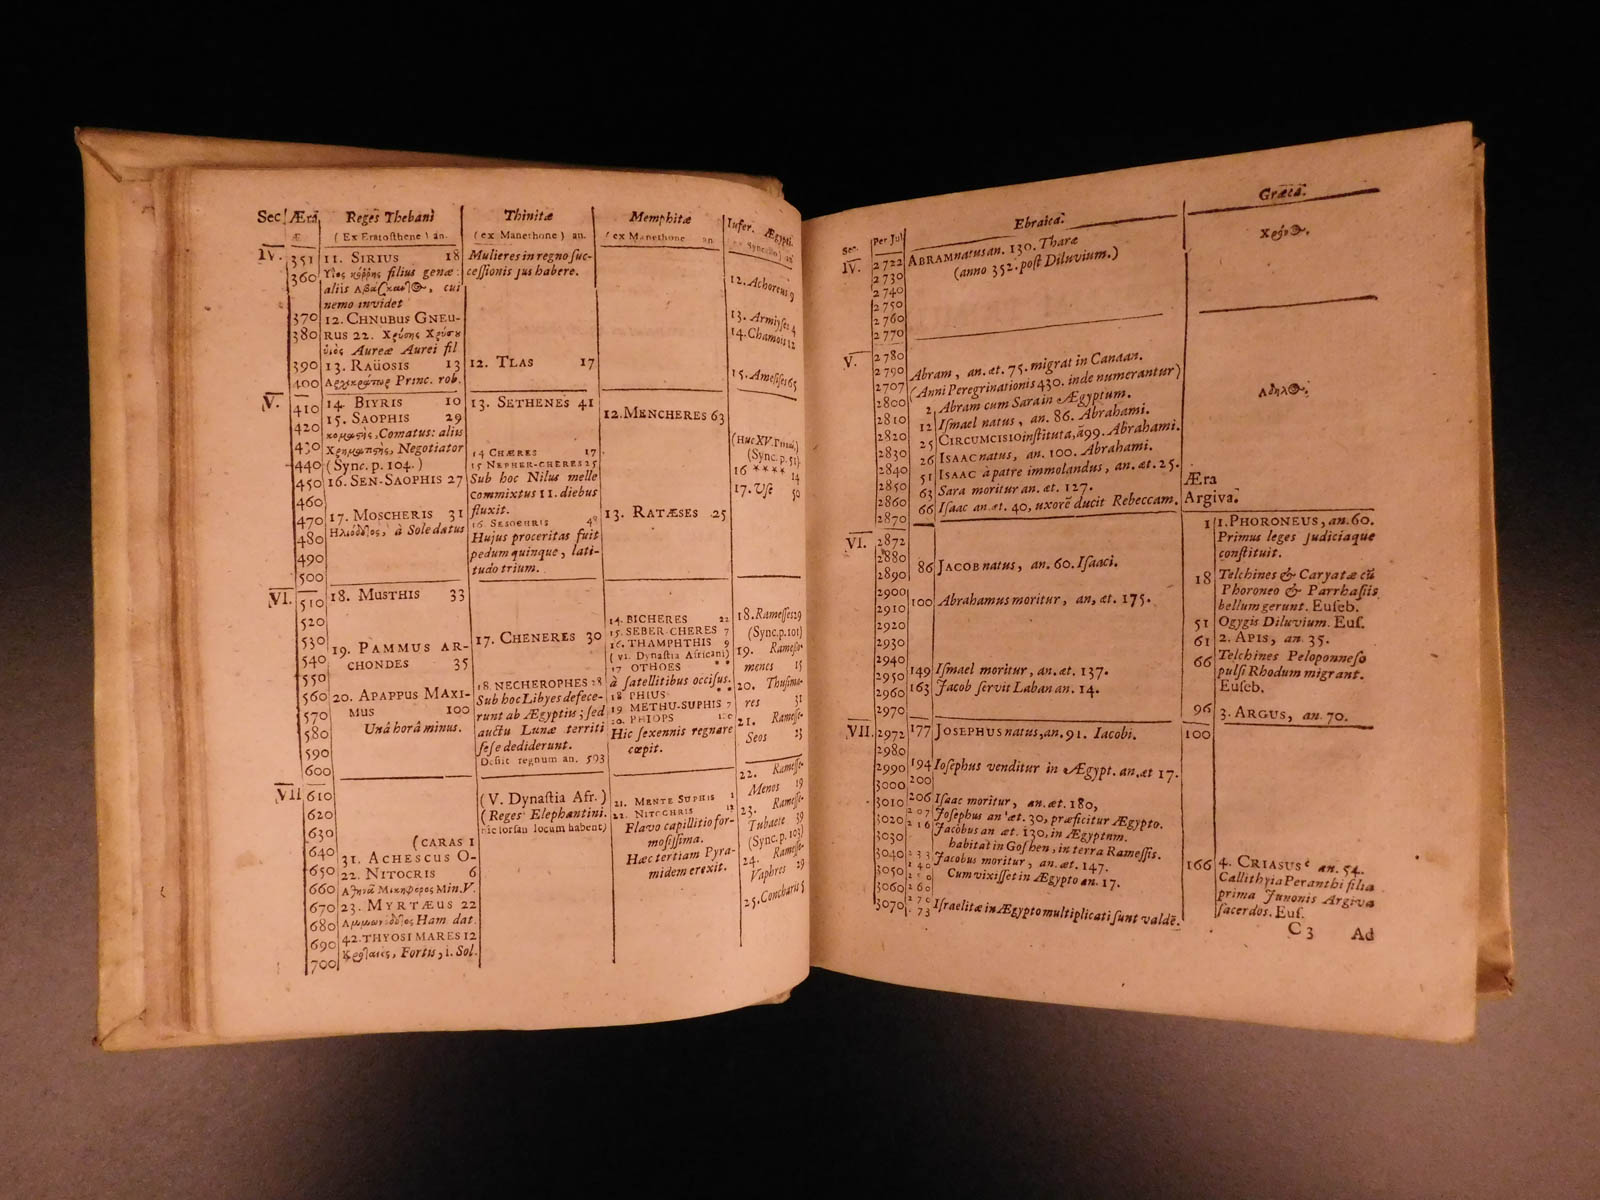 Sec. Æra Reges Thebani Thinitæ Memphitæ Infer. Ægypti.
Æ. (Ex Eratosthene) an. (ex Manethone) an. (ex Manethone an.
IV. 351 11. SIRIUS 18
360 Υἱος κόρρης filius genæ:
aliis , cui
nemo invidet
370 12. CHNUBUS GNEU-
380 RUS 22. Χρύσης Χρύσου
ὑιὸς Aureæ Aurei fil
390 13. RAÜOSIS 13
400 Princ. rob.
V. 410 14. BIYRIS 10
420 15. SAOPHIS 29
430 κομαστὴς, Comatus: aliis
440 Χρηματιστὴς, Negotiator
450 (Sync. p. 104.)
460 16. SEN-SAOPHIS 27
470 17. MOSCHERIS 31
480 Ηλιόδοτος, à Sole datus
490
500
VI. 510 18. MUSTHIS 33
520
530 19. PAMMUS AR-
540 CHONDES 35
550
560 20. APAPPUS MAXI-
570 MUS 100
580 Unâ horâ minus.
590
600
VII 610
620
630
640 (CARAS 1
650 31. ACHESCUS O-
660 22. NITOCRIS 6
Min. V.
670 23. MYRTÆUS 22
680 Ham dat.
690 42. THYOSI MARES 12
700 Fortis, i. Sol.
Mulieres in regno suc-
cessionis jus habere.
12. TLAS 17
13. SETHENES 41
14 CHÆRES 17
15 NEPHER-CHERES 25
Sub hoc Nilus melle
commixtus 11. diebus
fluxit.
16. SESOCHRIS 48
Hujus proceritas fuit
pedum quinque, lati-
tudo trium.
17. CHENERES 30
18. NECHEROPHES 28
Sub hoc Libyes defece-
runt ab Ægyptiis; sed
auctu Lunæ territi
sese dediderunt.
Desiit regnum an. 593
(V. Dynastia Afr.)
(Reges Elephantini.
hic forsan locum habent)
12. MENCHERES 63
13. RATÆSES 25
14. BICHERES 22
15. SEBER-CHERES 7
16. THAMPHTHIS 9
(VI. Dynastia Africani)
17 OTHOES * *
à satellitibus occisus.
18 PHIUS * *
19 METHU-SUPHIS 7
20. PHIOPS 100
Hic sexennis regnare
cœpit.
21. MENTE SUPHIS 1
22. NITOCHRIS 12
Flavo capillitio for-
mosissima.
Hæc tertiam Pyra-
midem erexit.
12. Achoreus 9
13. Armiyses 4
14. Chamois 12
15. Amesises 65
(Huc XV.
(Sync. p. 51)
16 **** 14
17. Use 50
18. Ramesses 29
(Sync. p. 101)
19. Ramesso-
menes 15
20. Thusima-
res 31
21. Ramesse-
Seos 23
22. Ramesse-
Menos 19
23. Ramesse-
Tubaete 39
(Sync. p. 103)
24. Ramesse-
Vaphres 29
25. Concharis 5
Sec. Per. Jul. Ebraica. Græca.
IV. 2722 ABRAM natus an. 130. Tharæ
2730 (anno 352. post Diluvium.)
2740
2750
2760
2770
V. 2780
2790 Abram, an. æt. 75. migrat in Canaan.
2707 (Anni Peregrinationis 430. inde numerantur)
2800 2 Abram cum Sara in Ægyptum.
2810 12 Ismael natus, an. 86. Abrahami.
2820 25 CIRCUMCISIO instituta, ā 99. Abrahami.
2830 26 ISAAC natus, an. 100. Abrahami.
2840 51 ISAAC à patre immolandus, an. æt. 25.
2850 63 Sara moritur an. æt. 127.
2860 66 Isaac an. æt. 40, uxorē ducit Rebeccam.
2870
VI. 2872
2880
2890 86 JACOB natus, an. 60. Isaaci.
2900
2910 100 Abrahamus moritur, an, æt. 175.
2920
2930
2940
2950 149 Ismael moritur, an. æt. 137.
2960 163 Jacob servit Laban an. 14.
2970
VII. 2972 177 JOSEPHUS natus, an. 91. Iacobi.
2980
2990 194 Iosephus venditur in Ægypt. an. æt 17.
3000 200
3010 206 Isaac moritur, an. æt. 180,
3020 207 Josephus an æt. 30, præficitur Ægypto.
3030 216 Jacobus an æt. 130, in Ægyptum.
habitat in Goshen, in terra Ramessis.
3040 233 Jacobus moritur, an. æt. 147.
3050 240 Cum vixisset in Ægypto an. 17.
3060 260
3070 270
273 Israelitæ in Ægypto multiplicati sunt valdē.
Χρόν
Αδηλ
Æra
Argiva.
1 1. PHORONEUS, an. 60.
Primus leges judiciaque
constituit.
18 Telchines & Caryatæ cū
Phoroneo & Parrhasiis
bellum gerunt. Euseb.
51 Ogygis Diluvium. Eus.
61 2. APIS, an. 35.
66 Telchines Peloponneso
pulsi Rhodum migrant.
Euseb.
96 3. ARGUS, an. 70.
100
166 4. CRIASUS an. 54.
Callithyia Peranthi filia
prima Junonis Argivæ
sacerdos. Eus.
C 3 Ad